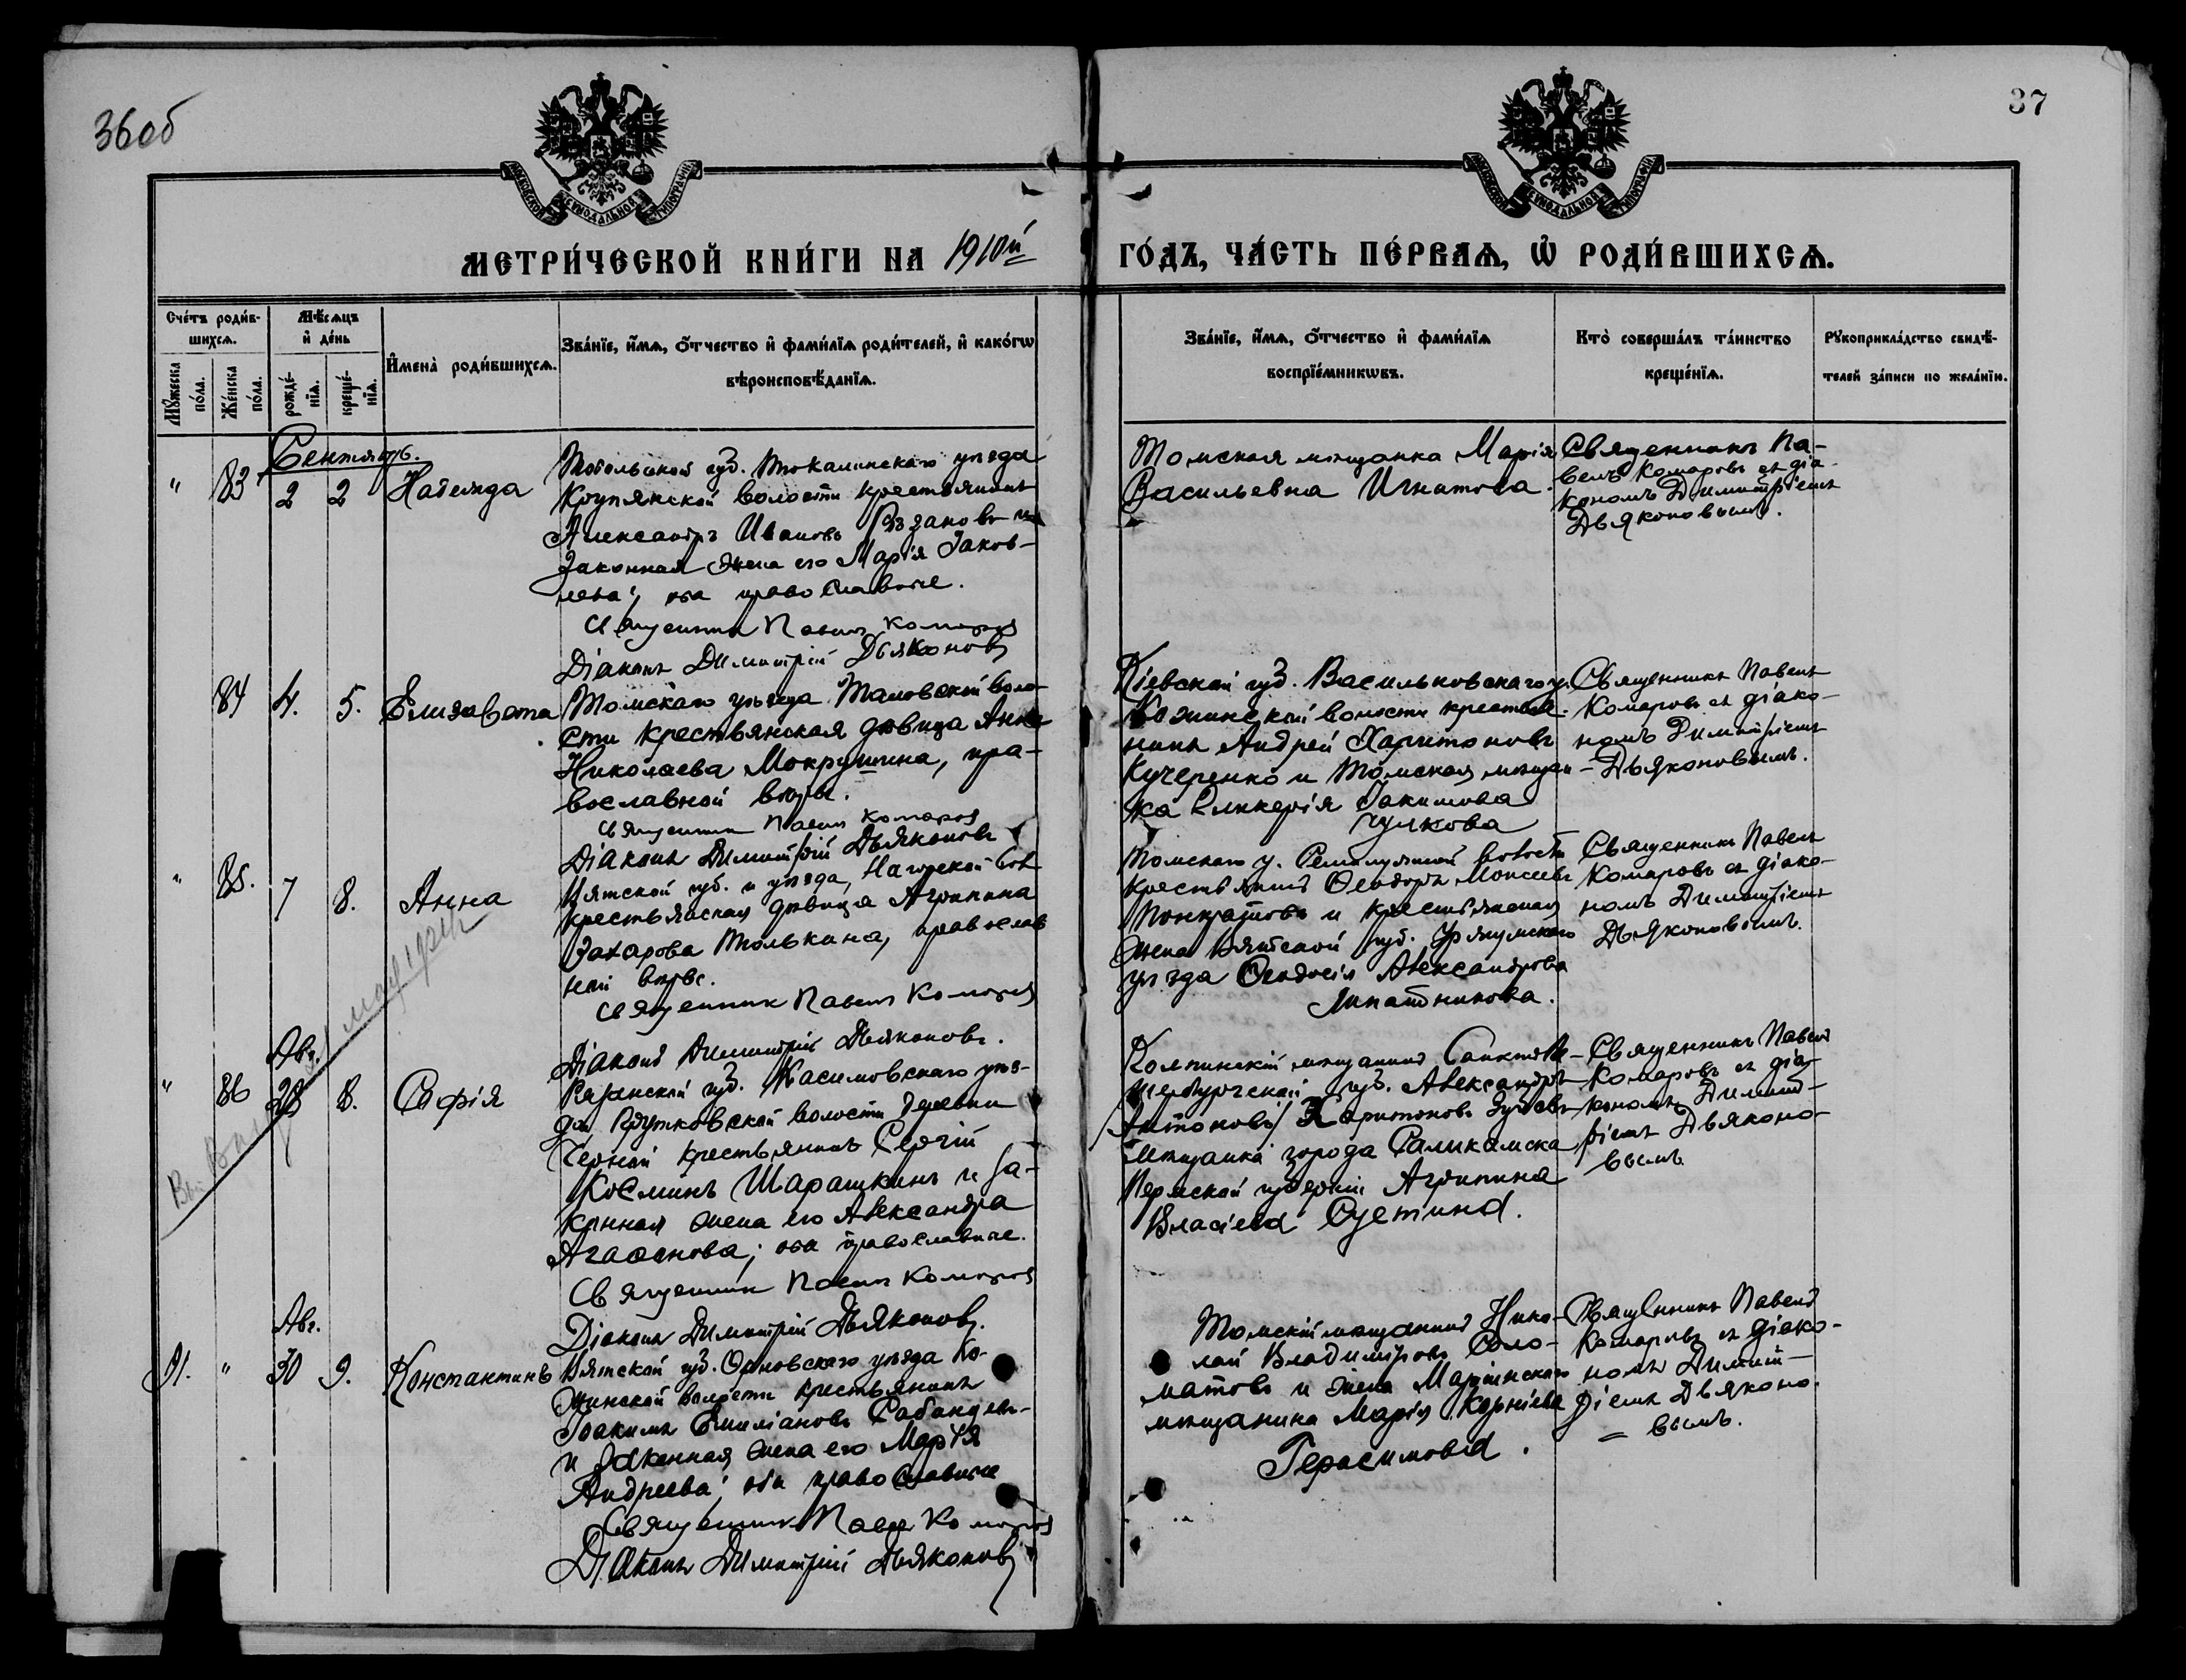 36об
37
МОСКОВСКОЙ СѴНОДАЛЬНОЙ ТИПОГРАФІИ
МОСКОВСКОЙ СѴНОДАЛЬНОЙ ТИПОГРАФІИ
МЕТРИ́ЧЕСКОЙ КНИ́ГИ НА 1910й ГО́ДЪ, ЧА́СТЬ ПЕ́РВАѦ, Ѡ҆ РОДИ́ВШИХСѦ.
Сче́тъ роди́в-
шихсѧ.
Мꙋ́жеска по́ла.
Же́нска по́ла.
Мѣ́сѧцъ
и҆ де́нь
рожде́-нїѧ.
креще́-нїѧ.
И҆мена̀ роди́вшихсѧ.
Зва́нїе, и҆́мѧ, ѻ҆́тчество и҆ фами́лїѧ роди́телей, и҆ како́гѡ
вѣроисповѣ́данїѧ.
Зва́нїе, и҆́мѧ, ѻ҆́тчество и҆ фами́лїѧ
воспрїе́мникѡвъ.
Кто̀ соверша́лъ та́инство
креще́нїѧ.
Рꙋкоприкла́дство свидѣ́-
телей за́писи по жела́нїю.
Сентябрь.
" 83 2 2 Надежда
Тобольской губ. Тюкалинскаго уѣзда
Крупянской волости крестьянинъ
Александръ Ивановъ Рязановъ и
законная жена его Марія Іаков-
лева; оба православные.
Священникъ Павелъ Комаровъ
Діаконъ Димитрій Дьяконовъ
Томская мѣщанка Марія
Васильевна Игнатова.
Священникъ Па-
велъ Комаровъ съ діа-
кономъ Димитріемъ
Дьяконовымъ.
84 4. 5. Елизавета
Томскаго уѣзда Таловской воло-
сти крестьянская дѣвица Анна
Николаева Мокрушина, пра-
вославной вѣры.
Священникъ Павелъ Комаровъ
Діаконъ Димитрій Дьяконовъ
Кіевской губ. Васильковскаго у.
Кожинской волости крестья-
нинъ Андрей Харитоновъ
Кучеренко и Томская мѣщан-
ка Гликерія Іакимова
Чулкова
Священникъ Павелъ
Комаровъ съ діако-
номъ Димитріемъ
Дьяконовымъ.
" 85. 7 8. Анна
Вятской губ. и уѣзда, Нагорской вол
крестьянская дѣвица Агрипина
Захарова Толькина, православ
ной вѣры.
Священникъ Павелъ Комаровъ
Діаконъ Димитрій Дьяконовъ.
Томскаго у. Семилужной волости
крестьянинъ Ѳеодоръ Моисеевъ
Понкратовъ и крестьянская
жена Вятской губ. Уржумскаго
уѣзда Ѳеодосія Александрова
Липатникова.
Священникъ Павелъ
Комаровъ съ діако-
номъ Димитріемъ
Дьяконовымъ.
Авг.
" 86 28 8. Софія
Рязанской губ. Касимовскаго уѣз-
да, волости деревни
Черной крестьянинъ Сергій
Косминъ Шарашкинъ и за-
конная жена его Александра
Агафонова; оба православные.
Священникъ Павелъ Комаровъ
Діаконъ Димитрій Дьяконовъ.
Колпинскій мѣщанинъ Санктъ-Пе-
тербургской губ. Александръ
Антоновъ Харитоновъ Зуевъ
Мѣщанка города Саликамска
Пермской губерніи Агрипина
Власіева Суетина.
Священникъ Павелъ
Комаровъ съ діа-
кономъ Димит-
ріемъ Дьяконо-
вымъ
Авг.
91. " 30 9. Константинъ
Вятской губ. Орловскаго уѣзда Ко-
жинской волости крестьянинъ
Іоакимъ Емиліановъ
и законная жена его Марія
Андреева; оба православные
Священникъ Павелъ Комаровъ
Діаконъ Димитрій Дьяконовъ
Томскій мѣщанинъ Нико-
лай Владиміровъ Соло-
матовъ и жена Маріинскаго
мѣщанина Марія Корніева
Герасимова.
Священникъ Павелъ
Комаровъ съ діако-
номъ Димит-
ріемъ Дьяконо-
вымъ.